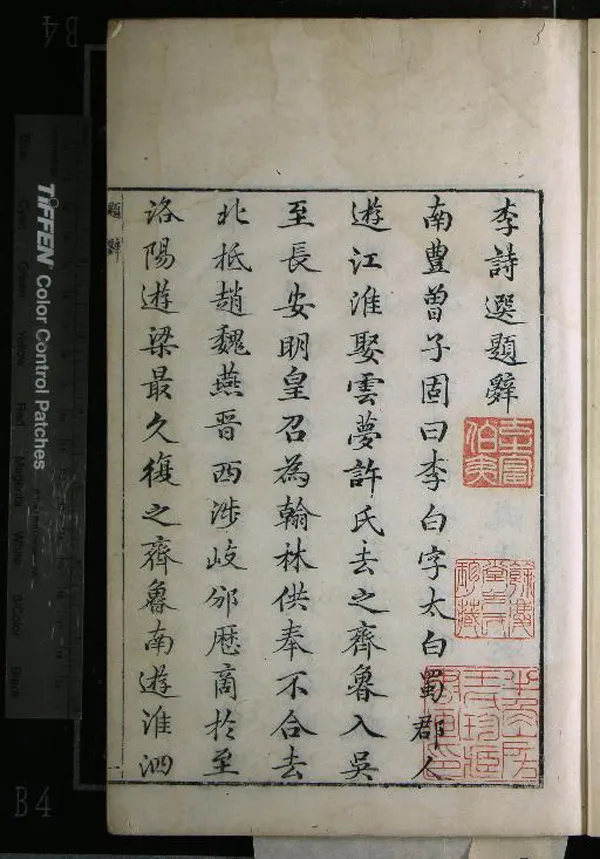 李詩選題辭
南豐曾子固曰李白字太白蜀郡人
遊江淮娶雲夢許氏去之齊魯入吳
至長安明皇召為翰林供奉不合去
北抵趙魏燕晉西涉岐邠歷商於至
洛陽遊梁最久復之齊魯南遊淮泗
題辭
TIFFEN Color Control Patches
B4
B4